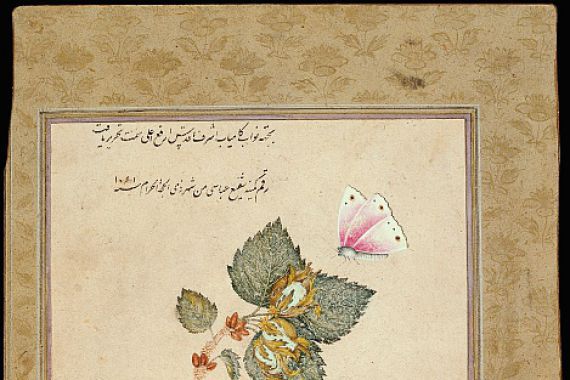 بجهته نواب کامیاب اشرف اقدس ارفع اعلی سمت تحریر یافت
رقم کمینه شفیع عباسی من شهر ذی الحجة الحرام سنه